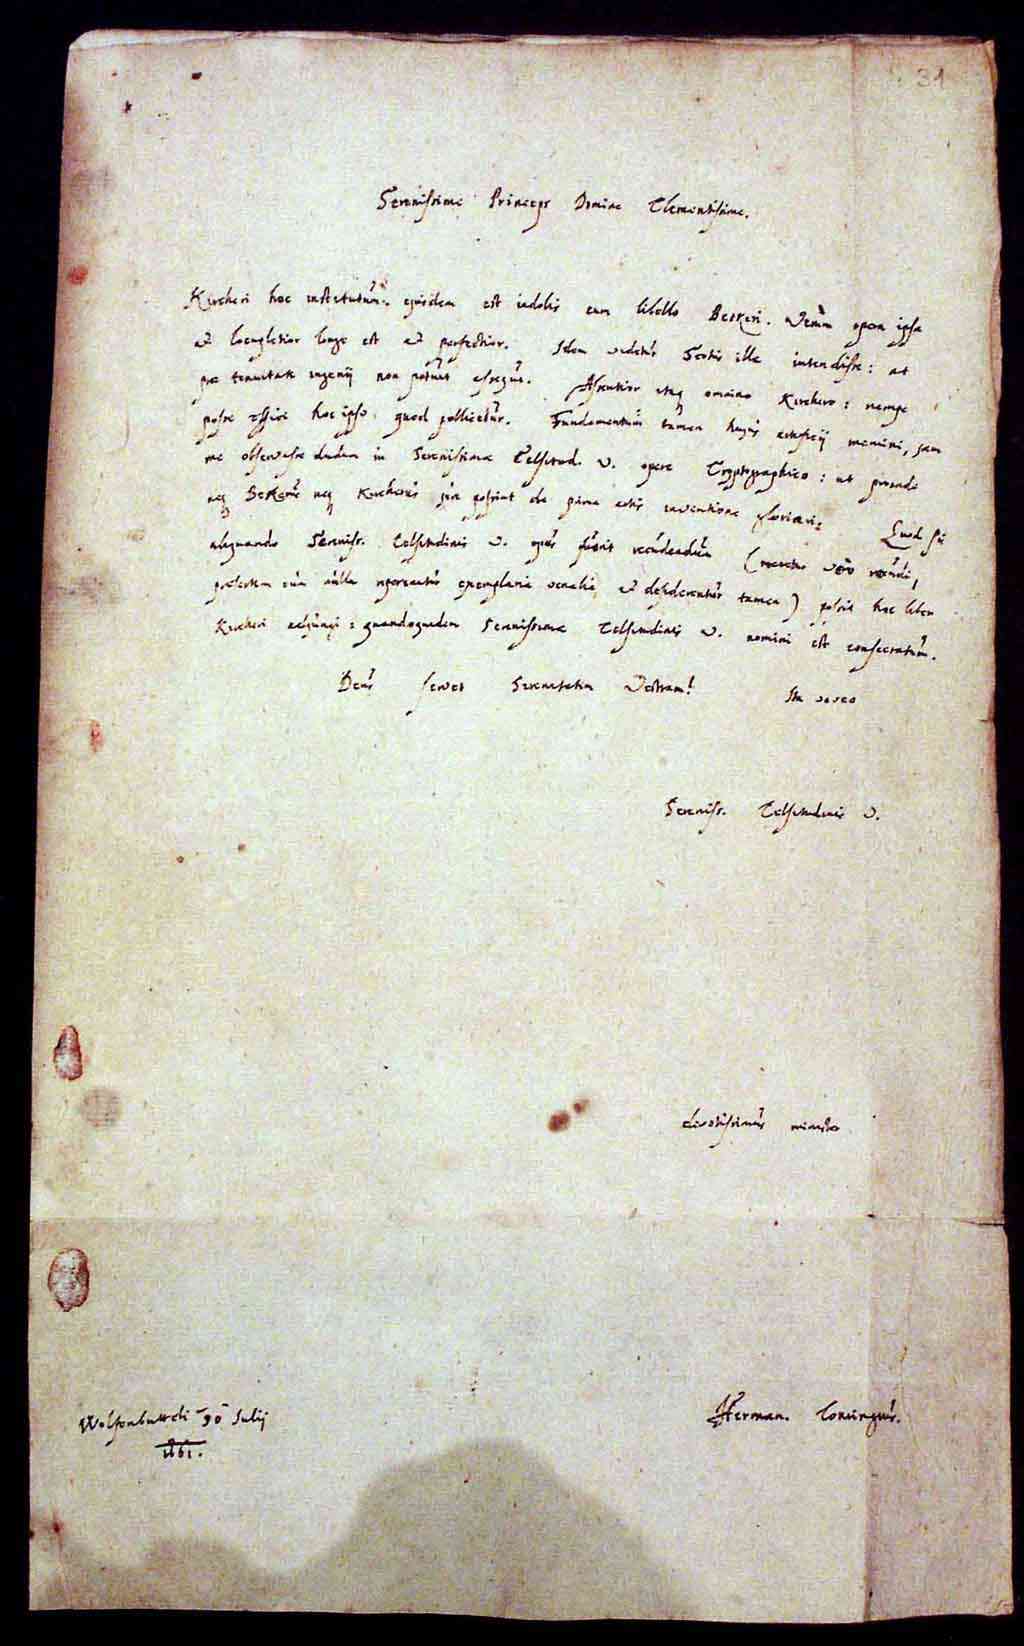 31
Serenissime Princeps Domine Clementissime.
Kircheri hoc institutum ejusdem est indolis cum libello Beckeri. Verùm opera ipsa
et longe est et perfectior. Idem videtur Scotus ille intendisse: at
prae tenuitate ingenij non potuit assequi. Assentior itaq omnino Kirchero: nempe
posse effici hoc ipso quod pollicetur. Fundamentum tamen hujus artificij memini, jam
me observasse dudum in Serenissimae Celsitud. V. opere Cryptographico: ut proinde
neq Beckerus neq Kircherus jure possint de prima artis inventione gloriari. Quod si
aliquando Sereniss. Celsitudinis V. opus fuerit recudendum (meretur vero recudi,
praesertim cum nulla exemplaria venalia, et desiderentur tamen) possit hoc
Kircheri adjungi: quandoquidem Serenissimae Celsitudinis V. nomini est consecratum.
Deus servet Serenitatem Vestram! Ita voveo
Sereniss. Celsitudinis V.
devotissimus minister
Herman. Conringius.
Wolfenbutteli 30 Julij
1661.